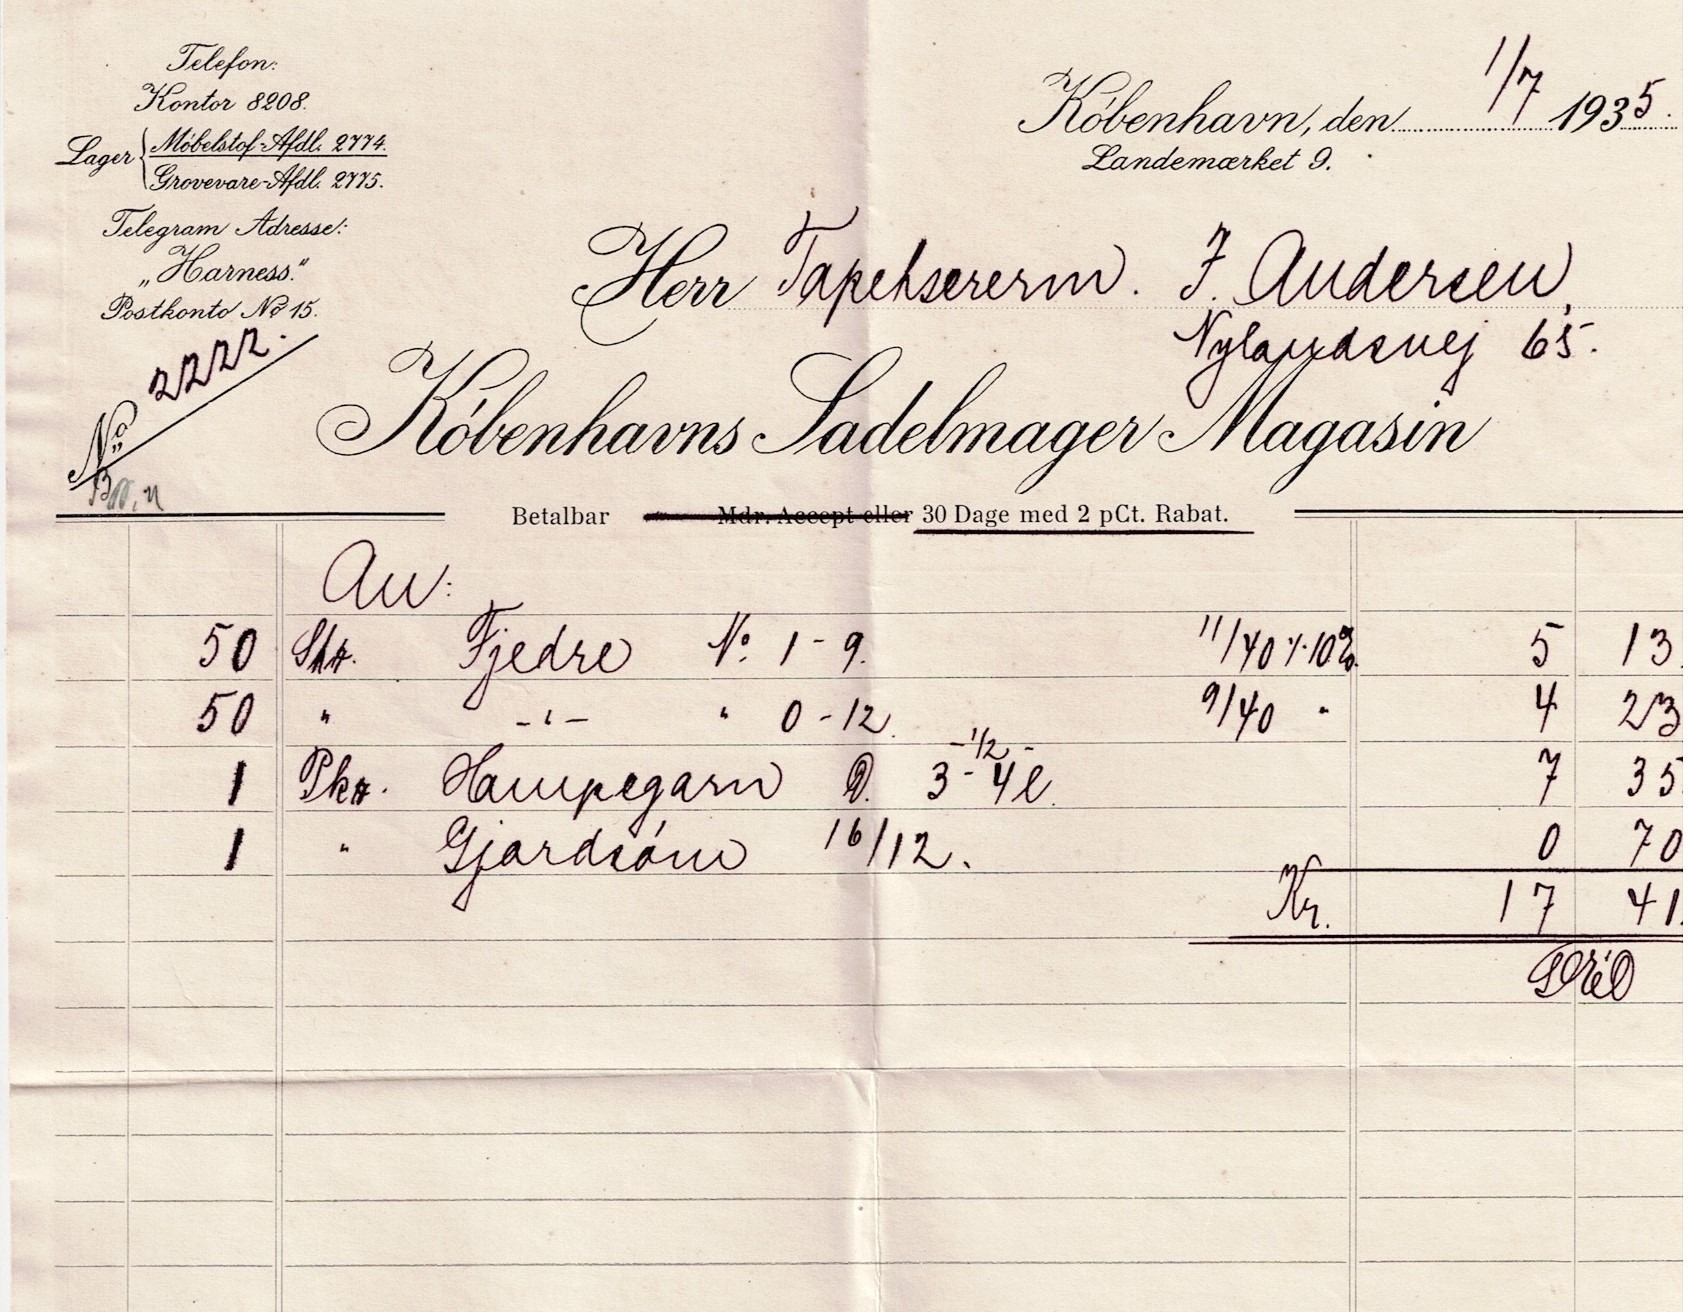 Telefon:
Kontor 8208.
Lager { Møbelstof-Afdl. 2774.
Grovevare-Afdl. 2775.
Telegram Adresse:
„Harness."
Postkonto No 15.
No 2222.
København, den 1/7 1935.
Landemærket 9.
Herr Tapetsererm. J. Andersen,
Nylandsvej 65.
Københavns Sadelmager Magasin
Betalbar Mdr. Accept eller 30 Dage med 2 pCt. Rabat.
An:
50 Stk. Fjedre No. 1 - 9. 11/40 ÷ 10% 5 13.
50 " -"- " 0 - 12. 9/40 " 4 23
1 Pk. Hampegarn D. 3 - 4 l. -1/2- 7 35.
1 " Gjordsöm 16/12. 0 70
Kr. 17 41.